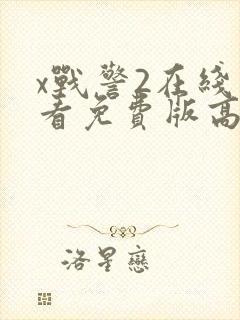 x戰警2在綫
看免費版高
洛星戀